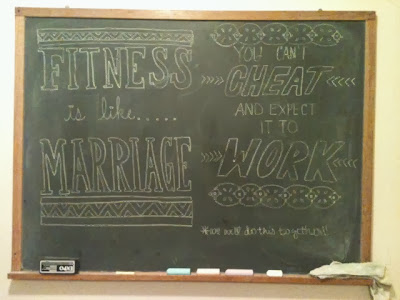 FITNESS
is like.....
MARRIAGE
YOU CAN'T
CHEAT
AND EXPECT
IT TO
WORK
#we will do this together!!
EXPO